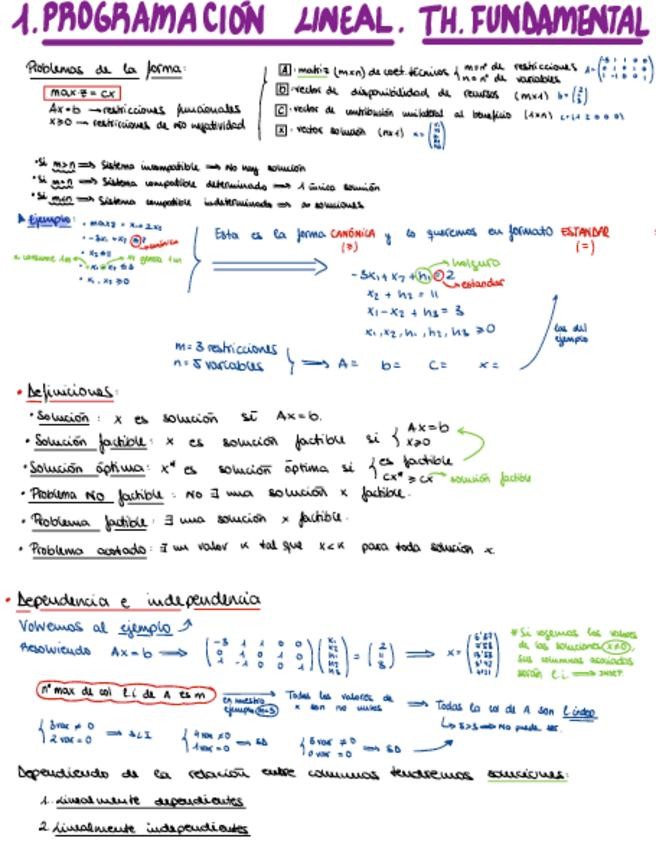 1. PROGRAMACIÓN LINEAL. TH. FUNDAMENTAL
Problemas de la forma:
max z = cx
Ax=b → restricciones funcionales
x≥0 → restricciones de no negatividad
A: matriz (m×n) de coef. técnicos { m=nº de restricciones
n=nº de variables
b: vector de disponibilidad de recursos (m×1)
c: vector de contribución unilateral al beneficio (1×n)
x: vector solución (n×1)
· Si m>n ⇒ Sistema incompatible ⇒ No hay solución
· Si m=n ⇒ Sistema compatible determinado ⇒ 1 única solución
· Si m<n ⇒ Sistema compatible indeterminado ⇒ ∞ soluciones
Ejemplo:
· max z = x₁+2x₂
· x₁, x₂ ≥0
Esta es la forma CANÓNICA y lo queremos en formato ESTANDAR
(≥) (=)
holgura
-3x₁+x₂+h₁=2
estandar
x₂+h₂=11
x₁-x₂+h₃=3
x₁,x₂,h₁,h₂,h₃ ≥0
las del
ejemplo
m=3 restricciones
n=5 variables
⇒ A= b= c= x=
· Definiciones:
· Solución: x es solución si Ax=b.
· Solución factible: x es solución factible si { Ax=b
x≥0
· Solución óptima: x* es solución óptima si { es factible
cx* ≥ cx → solución factible
· Problema NO factible: No ∃ una solución x factible.
· Problema factible: ∃ una solución x factible.
· Problema acotado: ∃ un valor K tal que x<K para toda solución x
· Dependencia e independencia
Volvemos al ejemplo
Resolviendo Ax=b ⇒
* Si cogemos los valores
de las soluciones x≠0,
sus columnas asociadas
serán l.i.
nº max de col l.i de A es m
en nuestro
ejemplo m=3
Todos los valores de
x son no nulos
⇒ Todas la col de A son l.indep
↳ 5>3 ⇒ No puede ser.
{ 3 var ≠ 0
2 var = 0
{ 4 var ≠0
1 var = 0 ⇒ SD
{ 5 var ≠ 0
0 var = 0 ⇒ SD
Dependiendo de la relación entre columnas tendremos soluciones:
1. Linealmente dependientes
2. Linealmente independientes